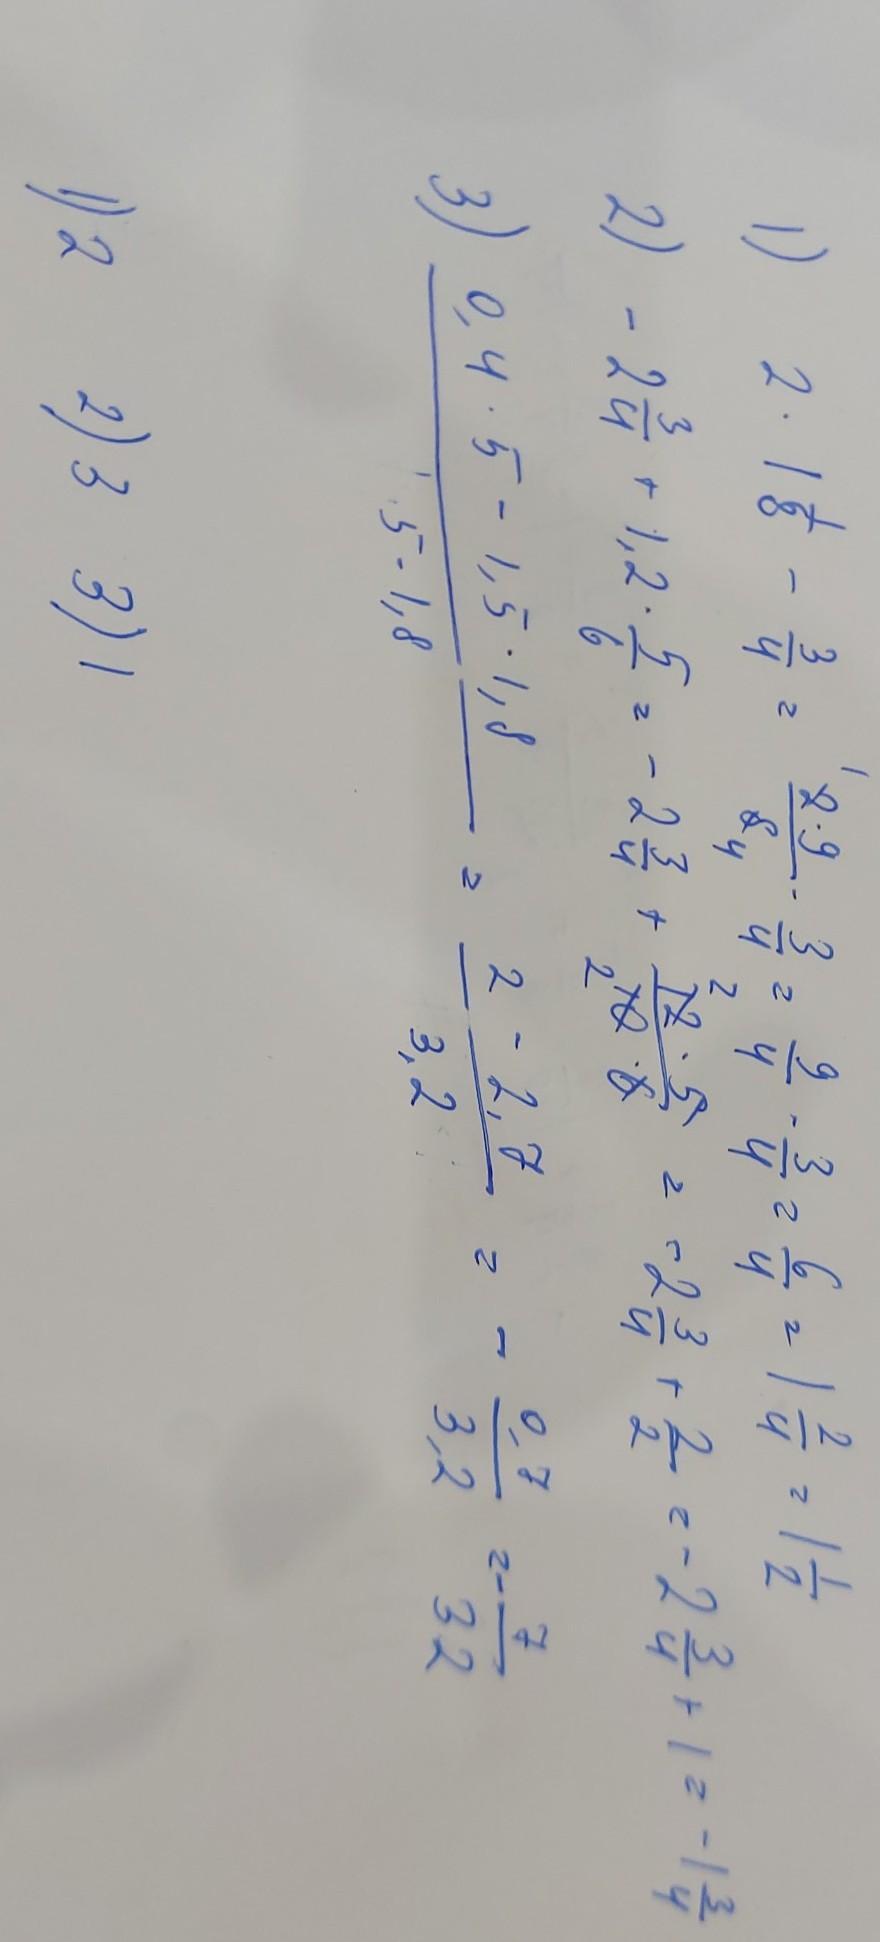 1) 2 · 1 1/8 - 3/4 = 2·9/8 - 3/4 = 9/4 - 3/4 = 6/4 = 1 2/4 = 1 1/2
2) - 2 3/4 + 1,2 · 5/6 = - 2 3/4 + 12·5/10·6 = - 2 3/4 + 2/2 = - 2 3/4 + 1 = - 1 3/4
3) 0,4 · 5 - 1,5 · 1,8 / 5 - 1,8 = 2 - 2,7 / 3,2 = - 0,7/3,2 = - 7/32
1) 2 2) 3 3) 1